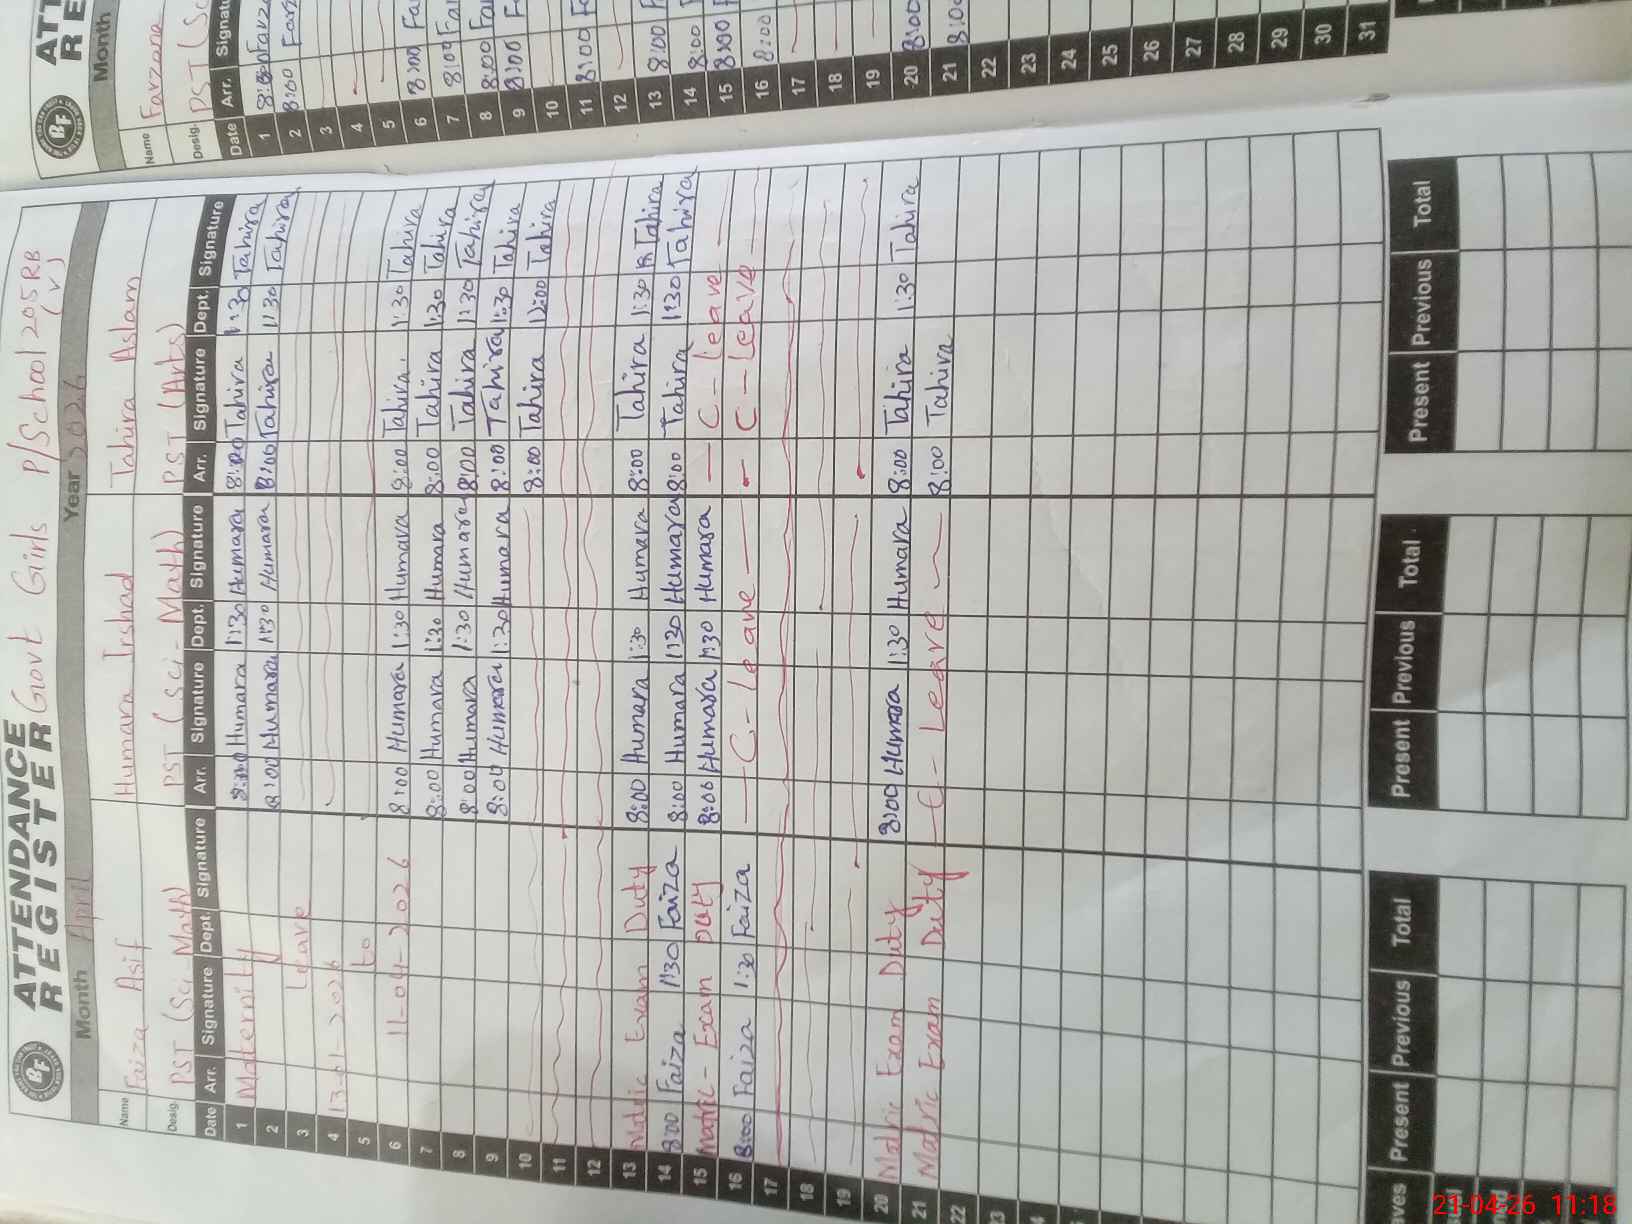 ATTENDANCE
REGISTER Govt Girls P/School 205RB
Month April Year 2026
Name Faiza Asif Humara Irshad Tahira Aslam
Desig. PST (Sci-Math) PST (Sci-Math) PST (Arts)
Date Arr. Signature Dept. Signature Arr. Signature Dept. Signature Arr. Signature Dept. Signature
1 Maternity 8:00 Humara 1:30 Humara 8:00 Tahira 1:30 Tahira
2 8:00 Humara 1:30 Humara 8:00 Tahira 1:30 Tahira
3 Leave
4 13-01-2026
5 to
6 11-04-2026 8:00 Humara 1:30 Humara 8:00 Tahira 1:30 Tahira
7 8:00 Humara 1:30 Humara 8:00 Tahira 1:30 Tahira
8 8:00 Humara 1:30 Humara 8:00 Tahira 1:30 Tahira
9 8:00 Humara 1:30 Humara 8:00 Tahira 1:30 Tahira
10 8:00 Tahira 12:00 Tahira
11
12
13 Matric Exam Duty 8:00 Humara 1:30 Humara 8:00 Tahira 1:30 Tahira
14 8:00 Faiza 1:30 Faiza 8:00 Humara 1:30 Humara 8:00 Tahira 1:30 Tahira
15 Matric - Exam Duty 8:00 Humara 1:30 Humara — C - Leave
16 8:00 Faiza 1:30 Faiza — C - Leave — C - Leave
17
18
19
20 Matric Exam Duty 8:00 Humara 1:30 Humara 8:00 Tahira 1:30 Tahira
21 Matric Exam Duty — C - Leave 8:00 Tahira
22
23
Present Previous Total Present Previous Total Present Previous Total
Month
Name Farzana
Desig. PST (Sc
Date Arr.
1 8:00 Farza
2 8:00 Farz
3
4
5
6 8:00 Fa
7 8:00 Fa
8 8:00 Fa
9 8:00 F
10
11 8:00 F
12
13 8:00 F
14 8:00
15 8:00
16 8:00
17
18
19
20 8:00
21 8:0
22
23
24
25
26
27
28
29
30
31
21-04-26 11:18